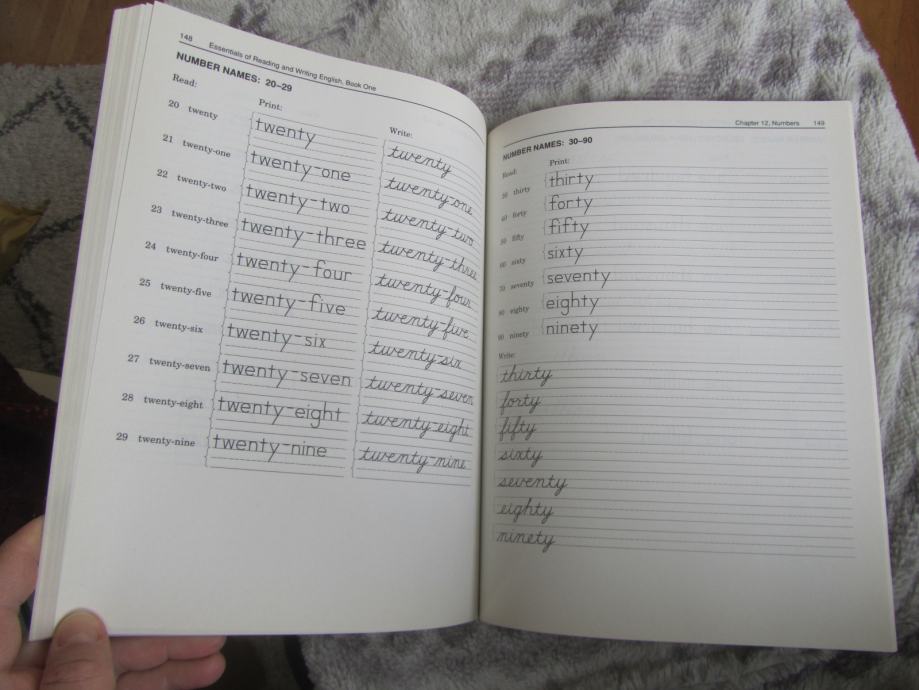 148 Essentials of Reading and Writing English, Book One
NUMBER NAMES: 20–29
Read: Print: Write:
20 twenty twenty twenty
21 twenty-one twenty-one twenty-one
22 twenty-two twenty-two twenty-two
23 twenty-three twenty-three twenty-three
24 twenty-four twenty-four twenty-four
25 twenty-five twenty-five twenty-five
26 twenty-six twenty-six twenty-six
27 twenty-seven twenty-seven twenty-seven
28 twenty-eight twenty-eight twenty-eight
29 twenty-nine twenty-nine twenty-nine
Chapter 12, Numbers 149
NUMBER NAMES: 30–90
Read: Print:
30 thirty thirty
40 forty forty
50 fifty fifty
60 sixty sixty
70 seventy seventy
80 eighty eighty
90 ninety ninety
Write:
thirty
forty
fifty
sixty
seventy
eighty
ninety